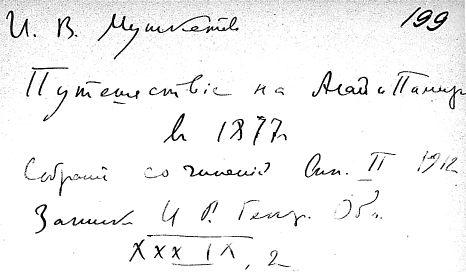 И. В. Мушкетов 199
Путешествіе на Алай и Памир
в 1877 г.
Собрание сочинений Вып. II 1912
Записки И Р. Геогр. Об.
XXXIX, 2